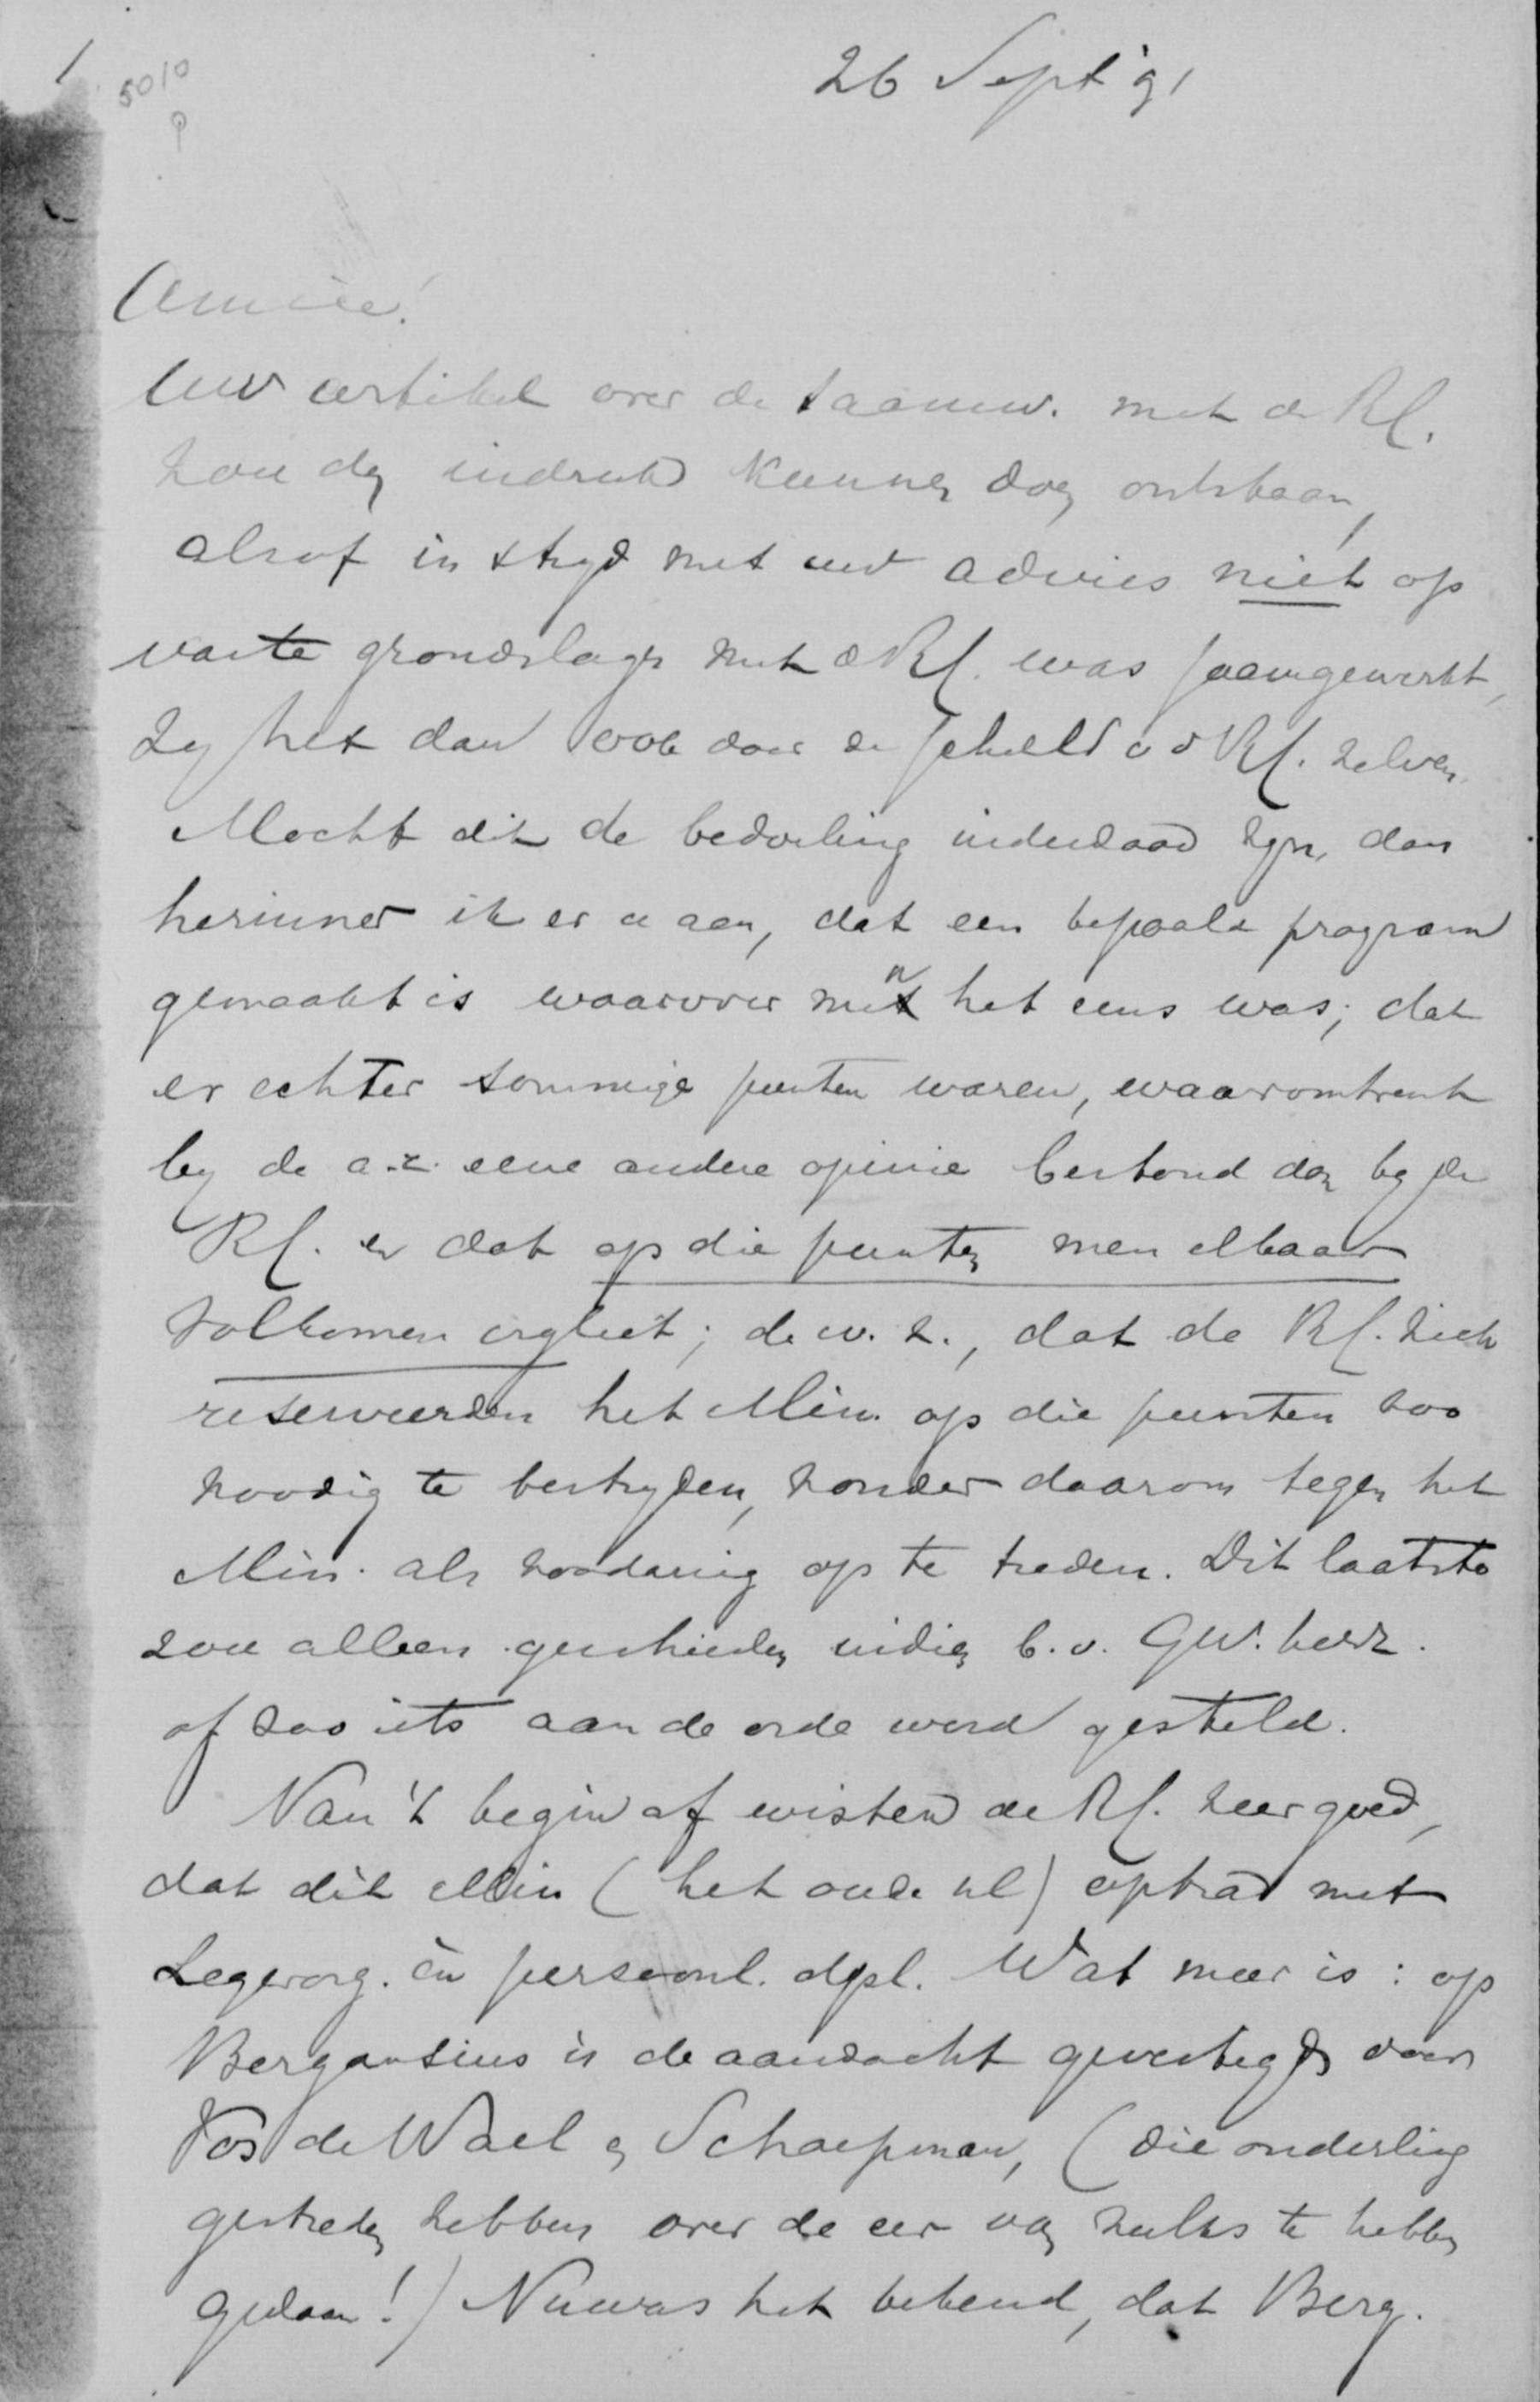 1
5010
26 Sept '91
Amice!
Uw artikel over de saamw. met de Rk.
zou den indruk kunnen doen ontstaan,
alsof in stryd met uw advies niet op
vaste grondslagen met d Rk. was saamgewerkt,
zy het dan ook door de schuld v d Rk. zelven.
Mocht dit de bedoeling inderdaad zyn, dan
herinner ik er u aan, dat een bepaald program
gemaakt is waarover men het eens was; dat
er echter sommige punten waren, waaromtrent
by de a.r. eene andere opinie bestond dan by de
Rk. en dat op die punten men elkaar
volkomen vryliet; d.w.z., dat de Rk. zich
reserveerden het Min. op die punten zoo
noodig te bestryden, zonder daarom tegen het
Min. als zoodanig op te treden. Dit laatste
zou alleen geschieden indien b.v. GW. herz.
of zoo iets aan de orde werd gesteld.
Van 't begin af wisten de Rk. zeer goed,
dat dit Min (het oude nl) optrad met
Legerorg. èn persoonl. dpl. Wat meer is: op
Bergansius is de aandacht gevestigd door
Vos de Wael en Schaepman, (die onderling
gestreden hebben over de eer van zulks te hebben
gedaan!) Nu was het bekend, dat Berg.